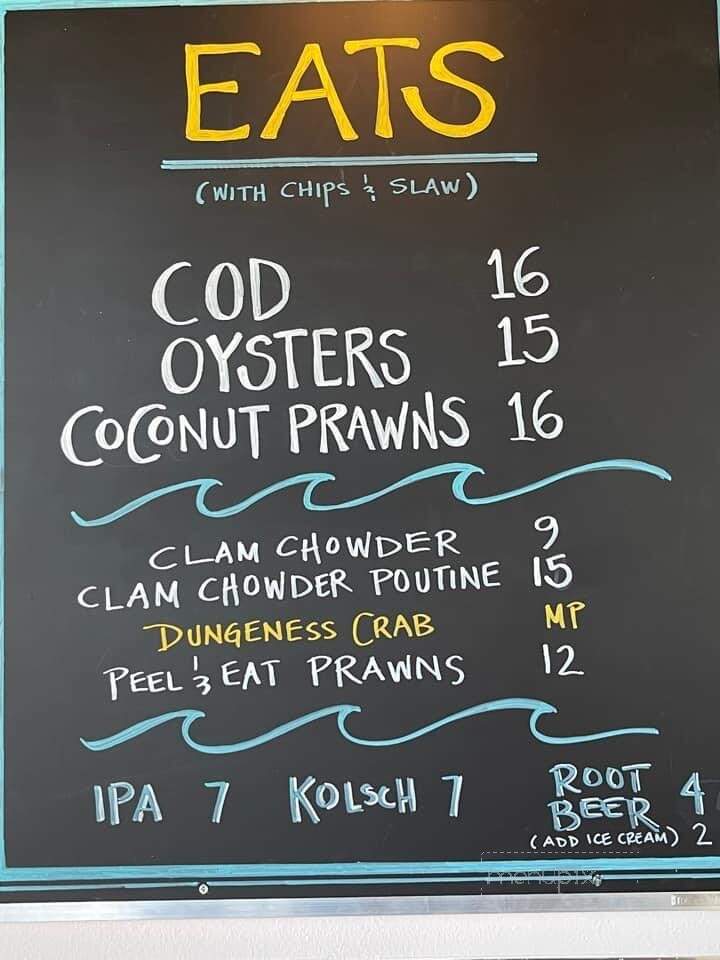 EATS
(WITH CHIPS & SLAW)
COD 16
OYSTERS 15
COCONUT PRAWNS 16
CLAM CHOWDER 9
CLAM CHOWDER POUTINE 15
DUNGENESS CRAB MP
PEEL & EAT PRAWNS 12
IPA 7 KOLSCH 7 ROOT BEER 4
(ADD ICE CREAM) 2
menupix